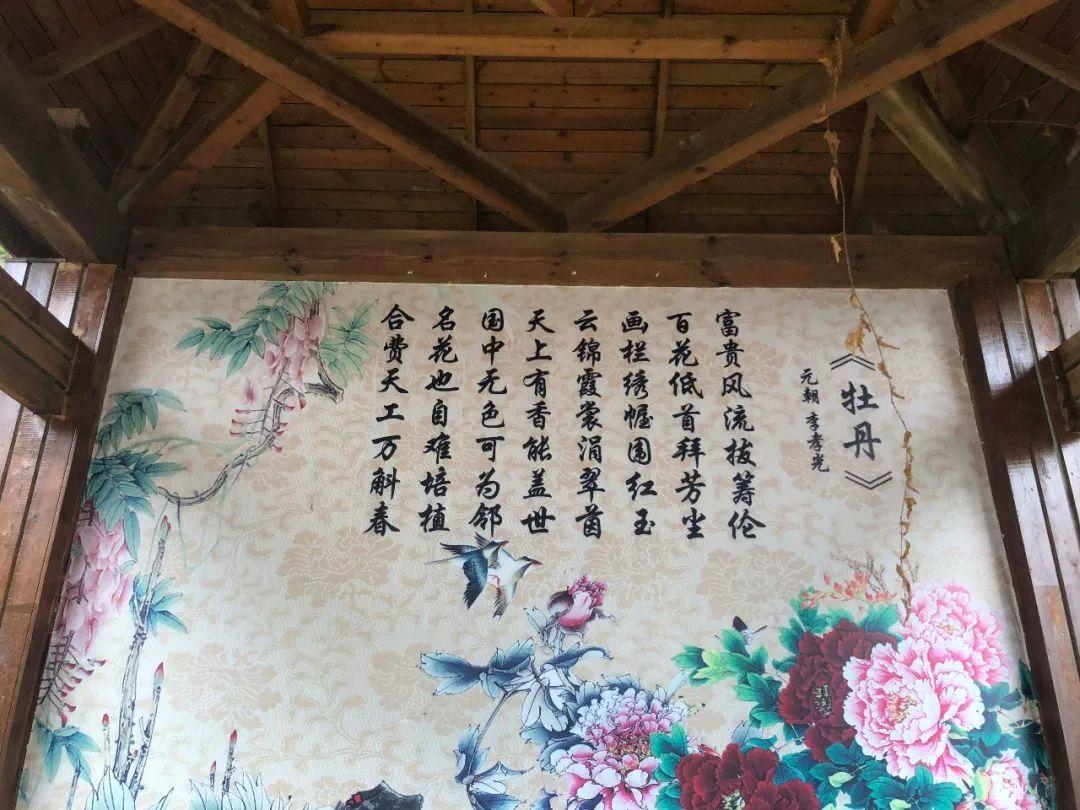 《牡丹》
元朝 李孝光
富贵风流拔筹伦
百花低首拜芳尘
画栏绣幄围红玉
云锦霞裳涓翠茵
天上有香能盖世
国中无色可为邻
名花也自难培植
合费天工万斛春